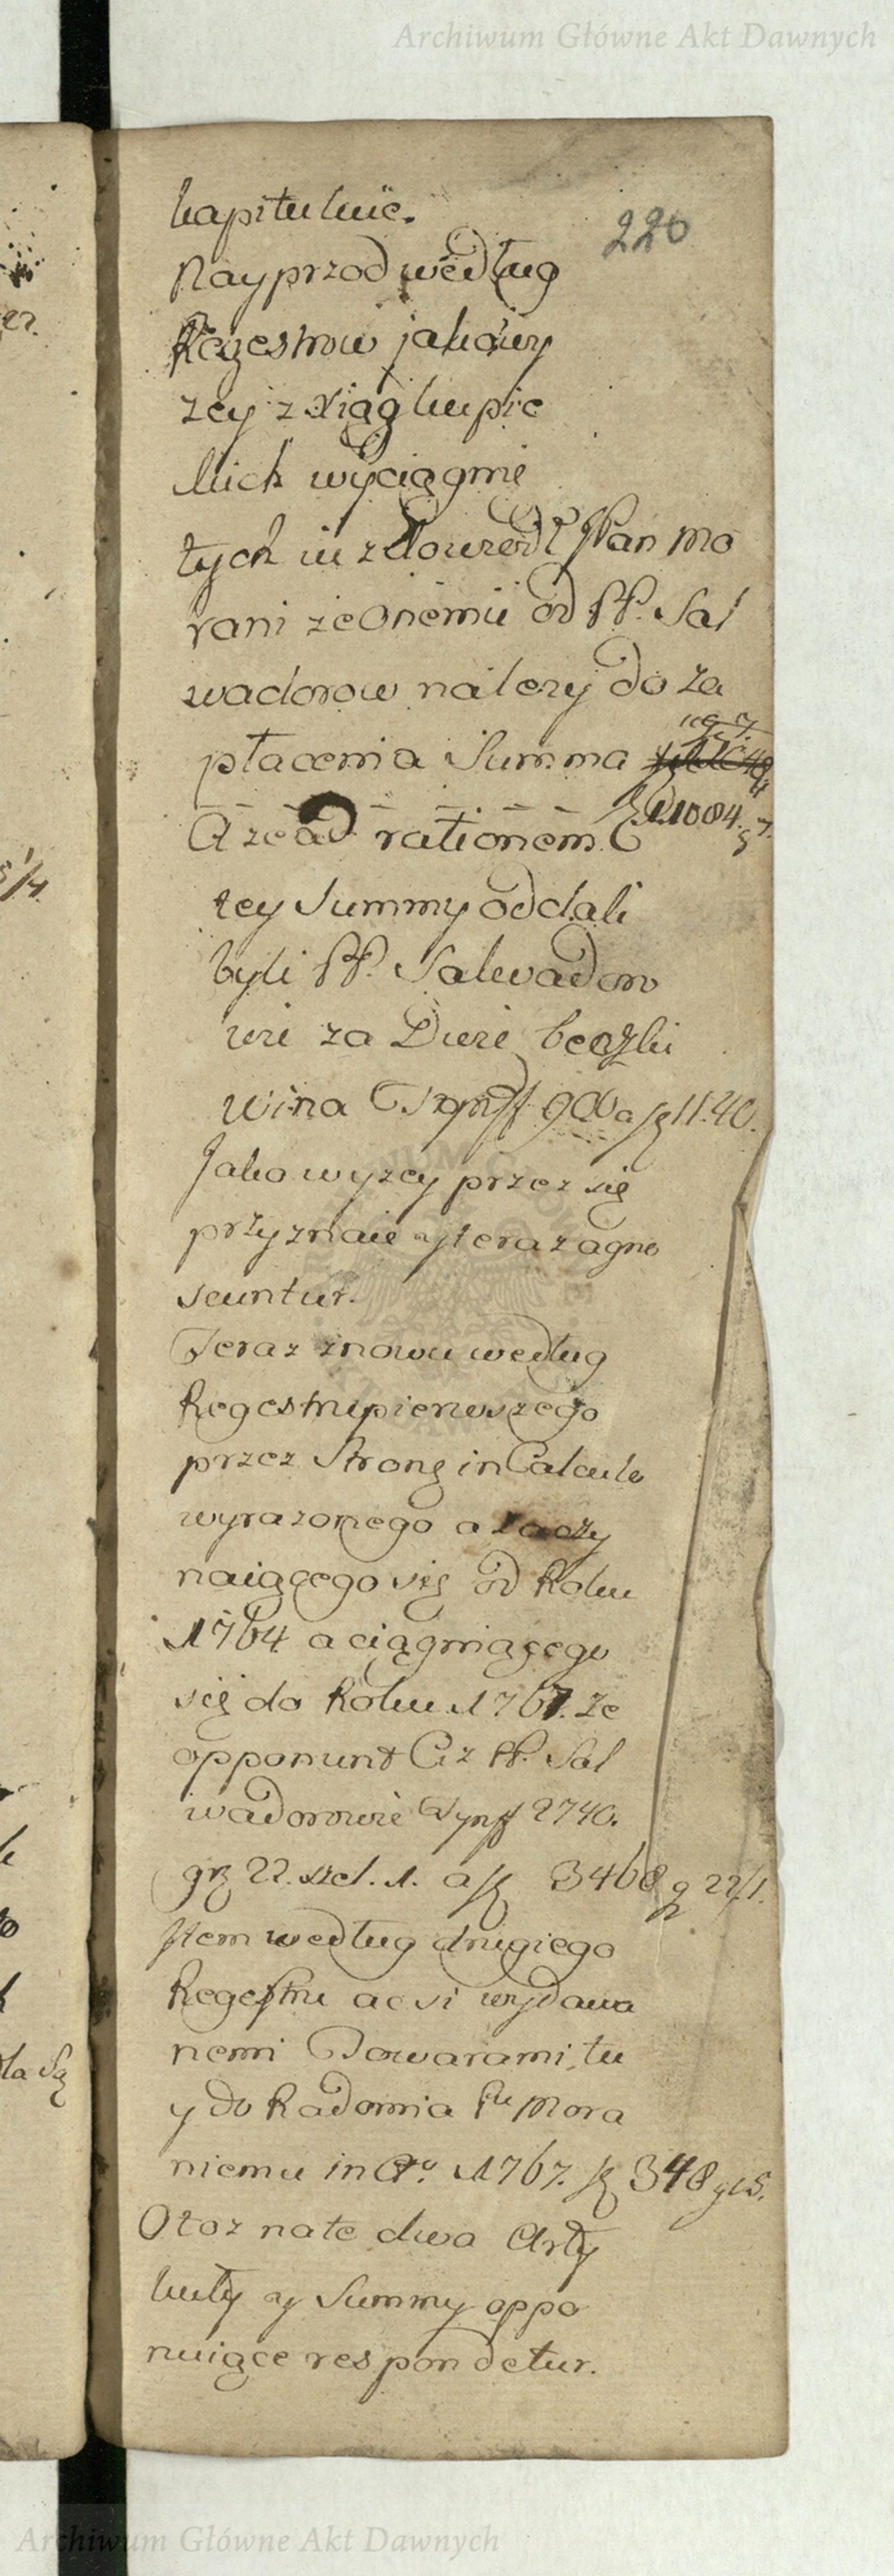 Archiwum Główne Akt Dawnych
kapituluie.
220
Nayprzod według
Regestrow jakowy
zey z xiąg kupie
ckich wyciągnię
tych
Pan Mo
rani że onemu od PP. Sal
wadorow należy do za
płacenia Summa
1084.
A że ad rationem
tey Summy oddali
byli PP. Salwadoro
wie za Dwie beczki
wina
Jako wyzey przez się
przyznaie y teraz agno
scuntur.
Teraz znowu według
Regestru pierwszego
przez Stronę in Calculo
wyrazonego a zaczy
naiącego się od Roku
1764 a ciągniącego
się do Roku 1767. Ze
opponunt PP. Sal
wadorowie Tynff 2740.
gr 22. szel. 1. a 3468 22/1.
Item według drugiego
Regestru acsi wydawa
nemi Towarami tu
y do Radomia Pu Mora
niemu in Ao. 1767. 348
Otoz na te dwa Arty
kuły y Summy oppo
nuiące respondetur.
Archiwum Główne Akt Dawnych